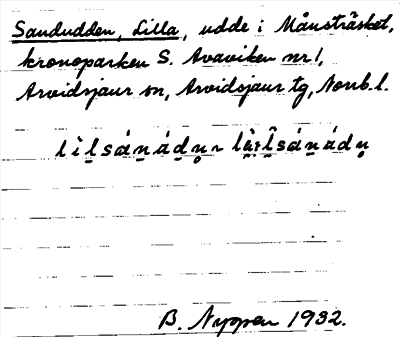 Sandudden, Lilla, udde i Månsträsket,
kronoparken S. Avaviken nr 1,
Arvidsjaur sn, Arvidsjaur tg, Norrb. l.
B. Nyppen 1932.